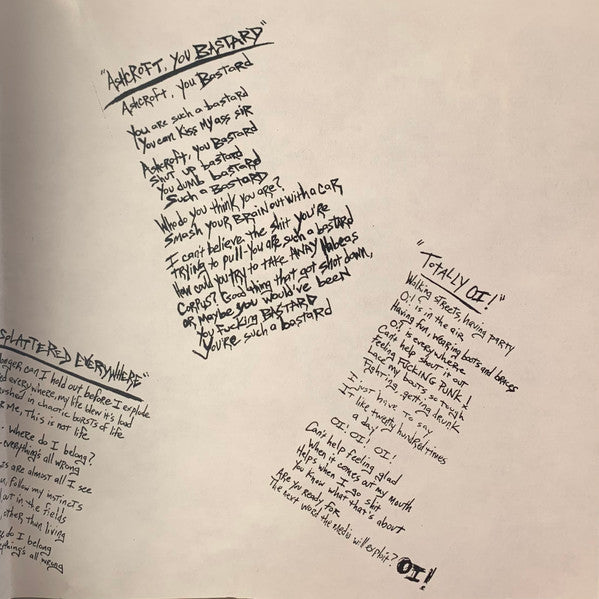 "ASHCROFT, YOU BASTARD"
Ashcroft, you Bastard
You are such a bastard
You can kiss my ass sir
Ashcroft, you Bastard
Shut up bastard
You dumb bastard
Such a BASTARD
Who do you think you are?
Smash your BRAIN out with a car
I can't believe the shit you're
trying to pull. You are such a bastard
How could you try to take AWAY Habeas
Corpus? Good thing that got shot down,
or maybe you would've been
You Fucking BASTARD
You're such a bastard
"TOTALLY OI!"
Walking streets, having party
Oi! is in the air
Having fun, wearing boots and braces
Oi! is everywhere
Can't help shout it out
feeling FUCKING PUNK!
Lace my boots so tight
Fighting, getting drunk
I just have to say
It like twenty hundred times
a day!
OI! OI! OI!
Can't help feeling glad
When it comes out my mouth
Helps when I go shit
You know what that's about
Are you ready for
The next word the Media will exploit? OI!
SPLATTERED EVERYWHERE"
longer can I hold out before I explode
everywhere, my life blew it's load
in chaotic bursts of life
me, This is not life
Where do I belong?
everything's all wrong
are almost all I see
follow my instincts
out in the fields
other than living
do I belong
everything's all wrong